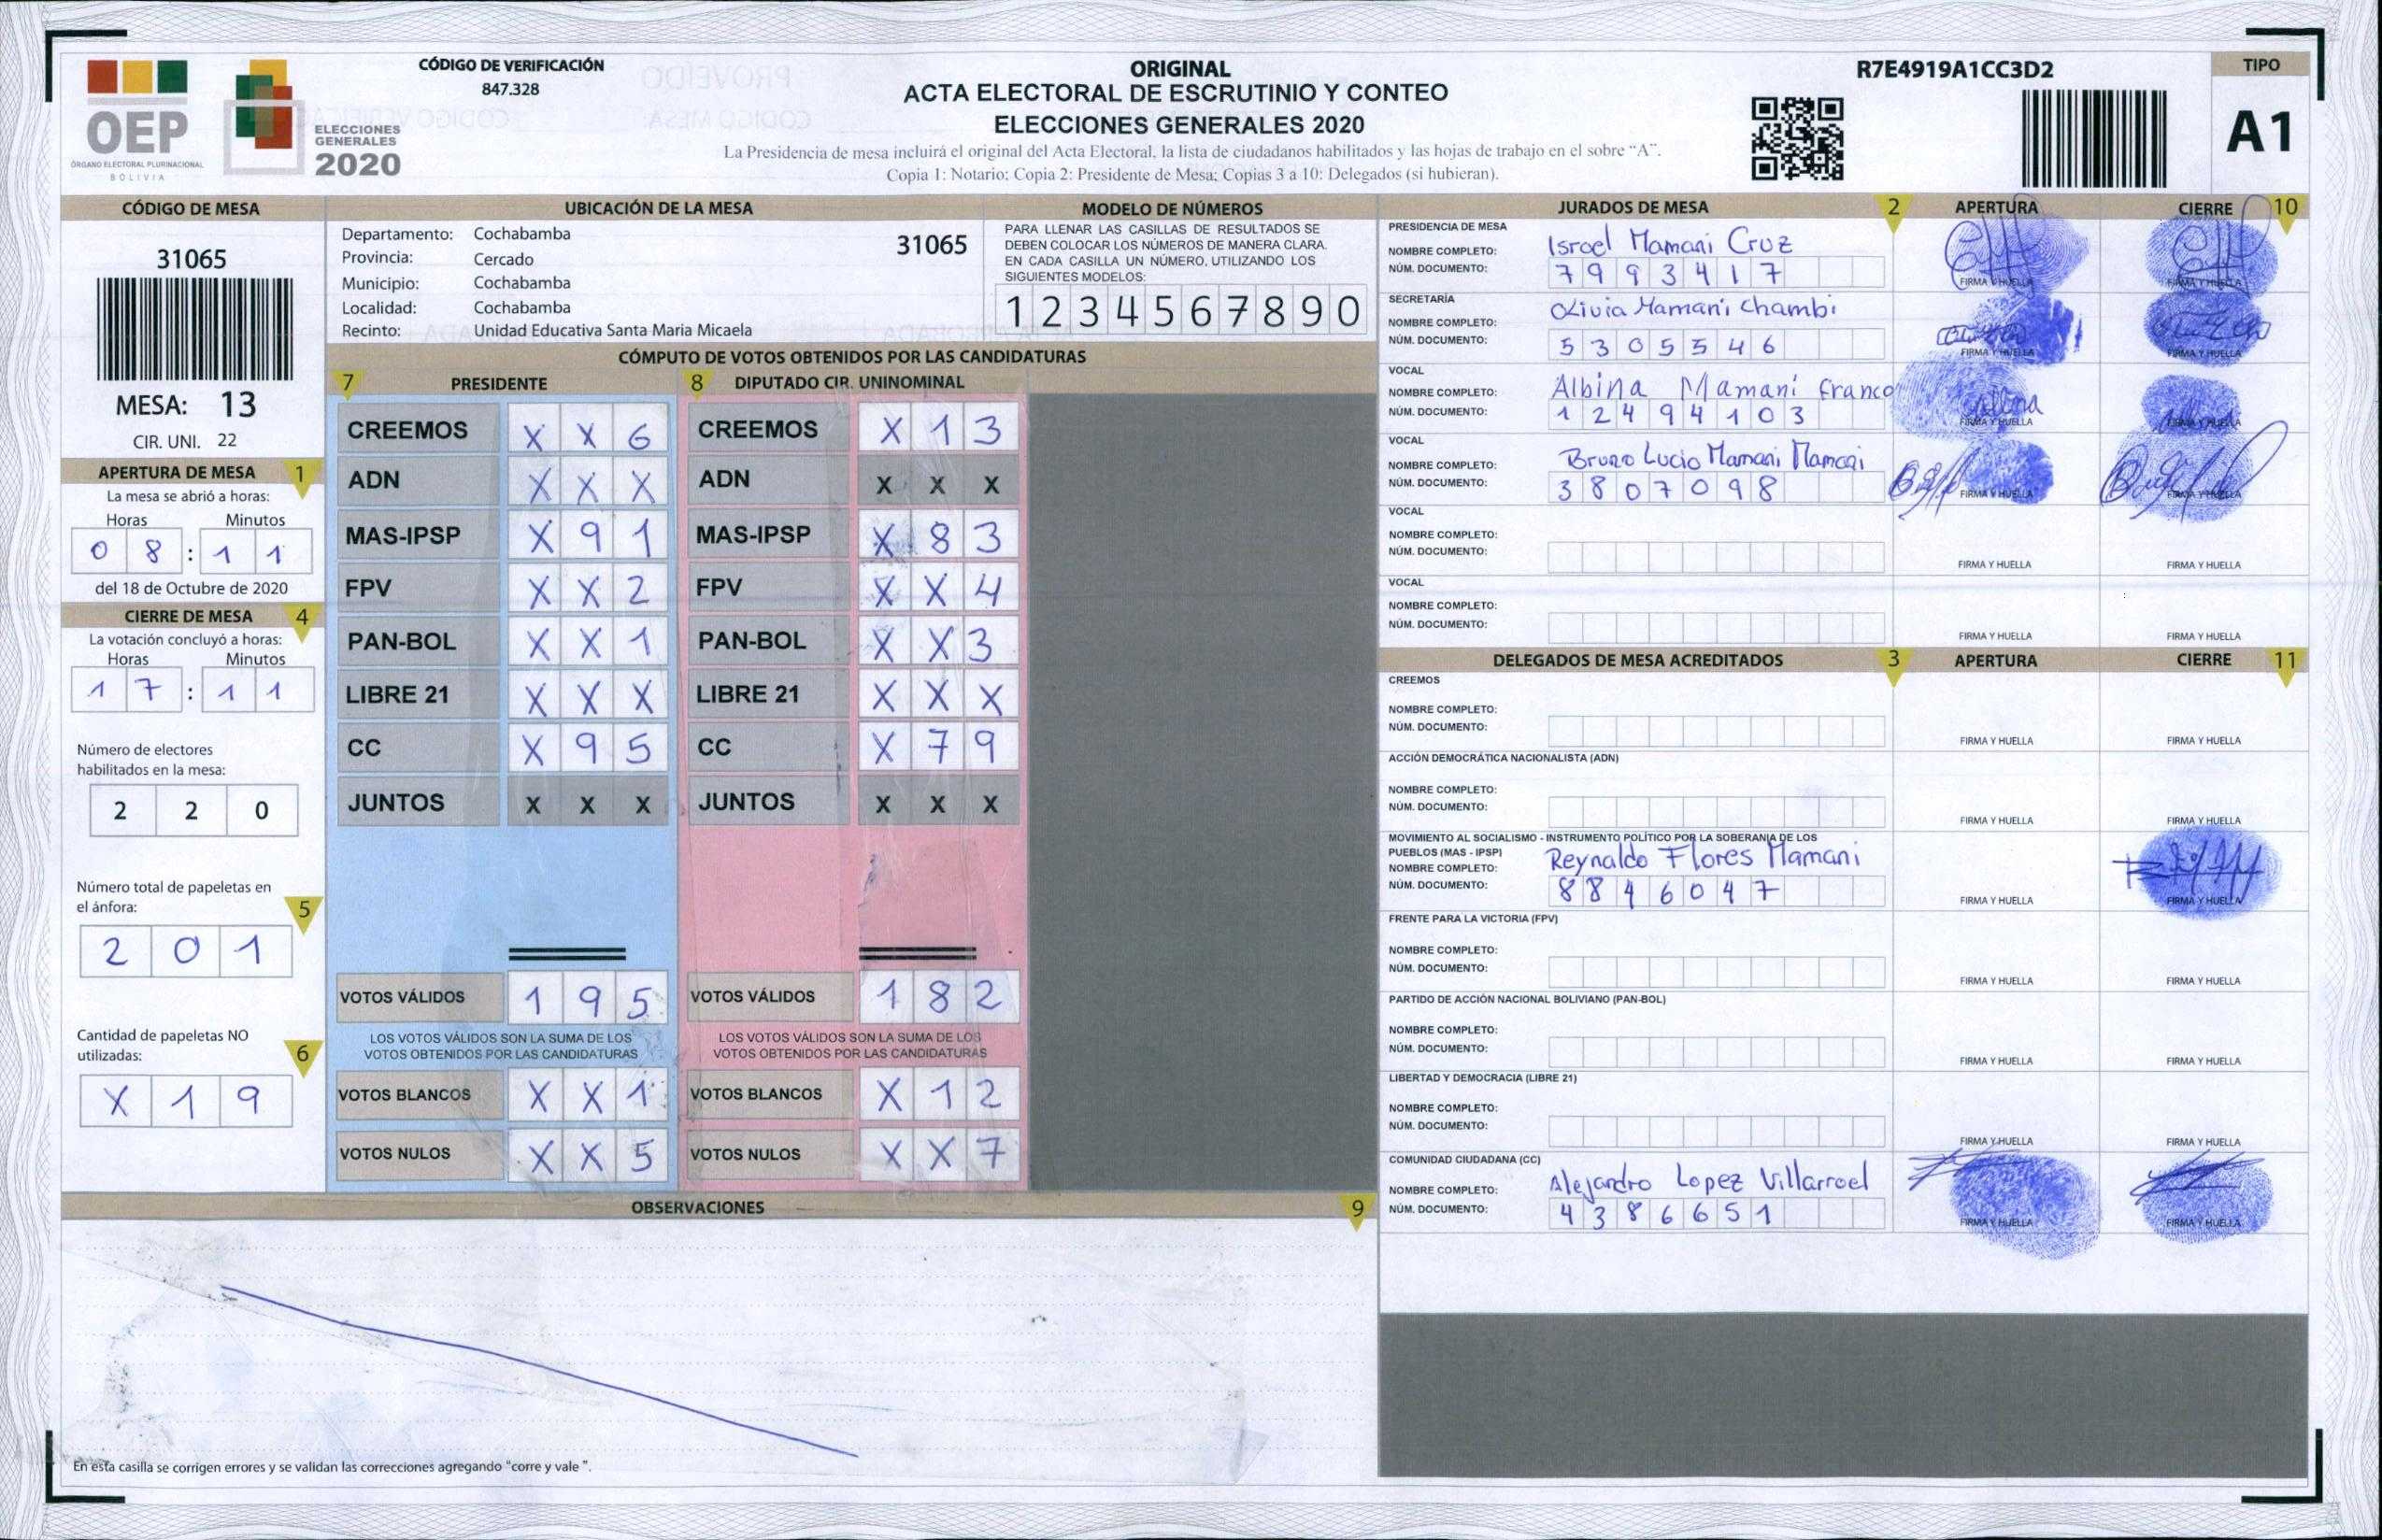 OEP
ÓRGANO ELECTORAL PLURINACIONAL
BOLIVIA
ELECCIONES
GENERALES
2020
CÓDIGO DE VERIFICACIÓN
847.328
ORIGINAL
ACTA ELECTORAL DE ESCRUTINIO Y CONTEO
ELECCIONES GENERALES 2020
La Presidencia de mesa incluirá el original del Acta Electoral, la lista de ciudadanos habilitados y las hojas de trabajo en el sobre “A”.
Copia 1: Notario; Copia 2: Presidente de Mesa; Copias 3 a 10: Delegados (si hubieran).
R7E4919A1CC3D2
TIPO
A1
CÓDIGO DE MESA
31065
MESA: 13
CIR. UNI. 22
APERTURA DE MESA 1
La mesa se abrió a horas:
Horas Minutos
0 8 : 1 1
del 18 de Octubre de 2020
CIERRE DE MESA 4
La votación concluyó a horas:
Horas Minutos
1 7 : 1 1
Número de electores
habilitados en la mesa:
2 2 0
Número total de papeletas en
el ánfora: 5
2 0 1
Cantidad de papeletas NO
utilizadas: 6
X 1 9
UBICACIÓN DE LA MESA
Departamento: Cochabamba 31065
Provincia: Cercado
Municipio: Cochabamba
Localidad: Cochabamba
Recinto: Unidad Educativa Santa Maria Micaela
MODELO DE NÚMEROS
PARA LLENAR LAS CASILLAS DE RESULTADOS SE
DEBEN COLOCAR LOS NÚMEROS DE MANERA CLARA.
EN CADA CASILLA UN NÚMERO, UTILIZANDO LOS
SIGUIENTES MODELOS:
1 2 3 4 5 6 7 8 9 0
CÓMPUTO DE VOTOS OBTENIDOS POR LAS CANDIDATURAS
7 PRESIDENTE 8 DIPUTADO CIR. UNINOMINAL
CREEMOS X X 6 CREEMOS X 1 3
ADN X X X ADN X X X
MAS-IPSP X 9 1 MAS-IPSP X 8 3
FPV X X 2 FPV X X 4
PAN-BOL X X 1 PAN-BOL X X 3
LIBRE 21 X X X LIBRE 21 X X X
CC X 9 5 CC X 7 9
JUNTOS X X X JUNTOS X X X
VOTOS VÁLIDOS 1 9 5 VOTOS VÁLIDOS 1 8 2
LOS VOTOS VÁLIDOS SON LA SUMA DE LOS LOS VOTOS VÁLIDOS SON LA SUMA DE LOS
VOTOS OBTENIDOS POR LAS CANDIDATURAS VOTOS OBTENIDOS POR LAS CANDIDATURAS
VOTOS BLANCOS X X 1 VOTOS BLANCOS X 1 2
VOTOS NULOS X X 5 VOTOS NULOS X X 7
OBSERVACIONES 9
En esta casilla se corrigen errores y se validan las correcciones agregando "corre y vale ".
JURADOS DE MESA 2 APERTURA CIERRE 10
PRESIDENCIA DE MESA
NOMBRE COMPLETO: Israel Mamani Cruz
NÚM. DOCUMENTO: 7 9 9 3 4 1 7
FIRMA Y HUELLA FIRMA Y HUELLA
SECRETARÍA
NOMBRE COMPLETO: Olivia Mamani Chambi
NÚM. DOCUMENTO: 5 3 0 5 5 4 6
FIRMA Y HUELLA FIRMA Y HUELLA
VOCAL
NOMBRE COMPLETO: Albina Mamani Franco
NÚM. DOCUMENTO: 1 2 4 9 4 1 0 3
FIRMA Y HUELLA FIRMA Y HUELLA
VOCAL
NOMBRE COMPLETO: Bruno Lucio Mamani Mamani
NÚM. DOCUMENTO: 3 8 0 7 0 9 8
FIRMA Y HUELLA FIRMA Y HUELLA
VOCAL
NOMBRE COMPLETO:
NÚM. DOCUMENTO:
FIRMA Y HUELLA FIRMA Y HUELLA
VOCAL
NOMBRE COMPLETO:
NÚM. DOCUMENTO:
FIRMA Y HUELLA FIRMA Y HUELLA
DELEGADOS DE MESA ACREDITADOS 3 APERTURA CIERRE 11
CREEMOS
NOMBRE COMPLETO:
NÚM. DOCUMENTO:
FIRMA Y HUELLA FIRMA Y HUELLA
ACCIÓN DEMOCRÁTICA NACIONALISTA (ADN)
NOMBRE COMPLETO:
NÚM. DOCUMENTO:
FIRMA Y HUELLA FIRMA Y HUELLA
MOVIMIENTO AL SOCIALISMO - INSTRUMENTO POLÍTICO POR LA SOBERANIA DE LOS
PUEBLOS (MAS - IPSP)
NOMBRE COMPLETO: Reynaldo Flores Mamani
NÚM. DOCUMENTO: 8 8 4 6 0 4 7
FIRMA Y HUELLA FIRMA Y HUELLA
FRENTE PARA LA VICTORIA (FPV)
NOMBRE COMPLETO:
NÚM. DOCUMENTO:
FIRMA Y HUELLA FIRMA Y HUELLA
PARTIDO DE ACCIÓN NACIONAL BOLIVIANO (PAN-BOL)
NOMBRE COMPLETO:
NÚM. DOCUMENTO:
FIRMA Y HUELLA FIRMA Y HUELLA
LIBERTAD Y DEMOCRACIA (LIBRE 21)
NOMBRE COMPLETO:
NÚM. DOCUMENTO:
FIRMA Y HUELLA FIRMA Y HUELLA
COMUNIDAD CIUDADANA (CC)
NOMBRE COMPLETO: Alejandro Lopez Villarroel
NÚM. DOCUMENTO: 4 3 8 6 6 5 1
FIRMA Y HUELLA FIRMA Y HUELLA